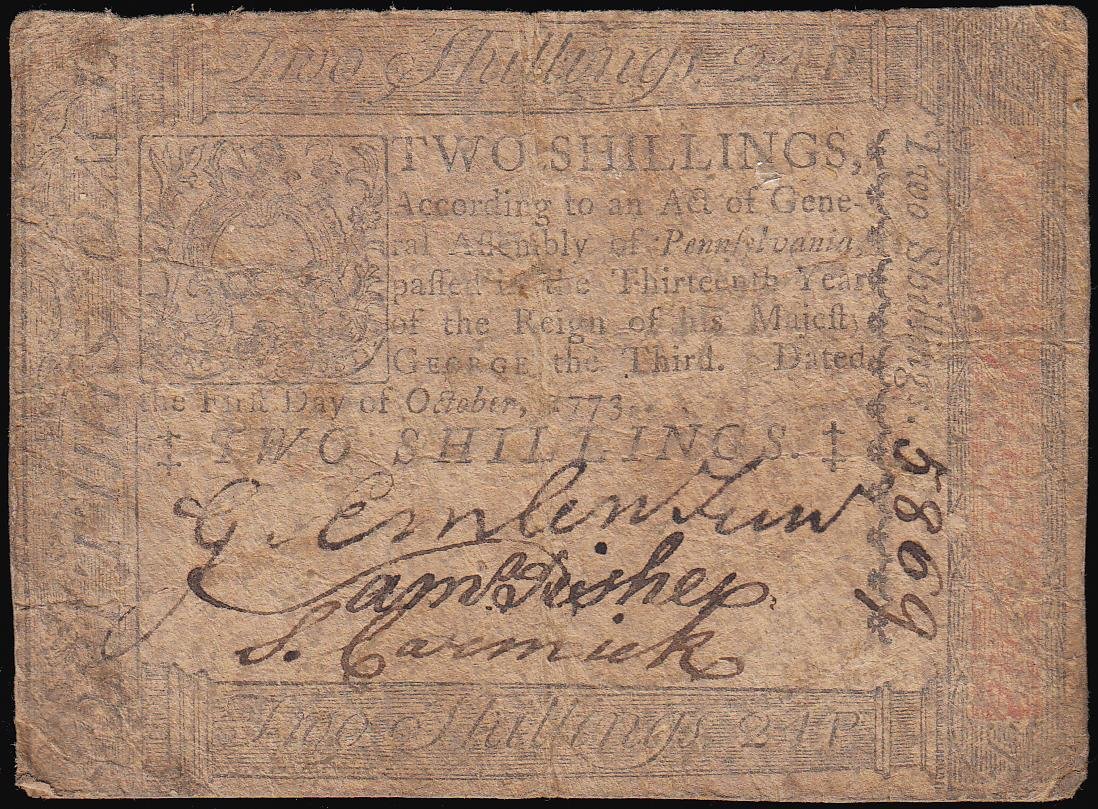 Two Shillings 24 P
TWO SHILLINGS,
According to an Act of Gene-
ral Aſſembly of Pennſylvania,
paſſed in the Thirteenth Year
of the Reign of his Majeſty
GEORGE the Third. Dated
the Firſt Day of October, 1773.
‡ TWO SHILLINGS. ‡
G. Emlen Jun
Saml. Fisher
S. Carmick
Two Shillings 24 P
Two Shillings.
5869